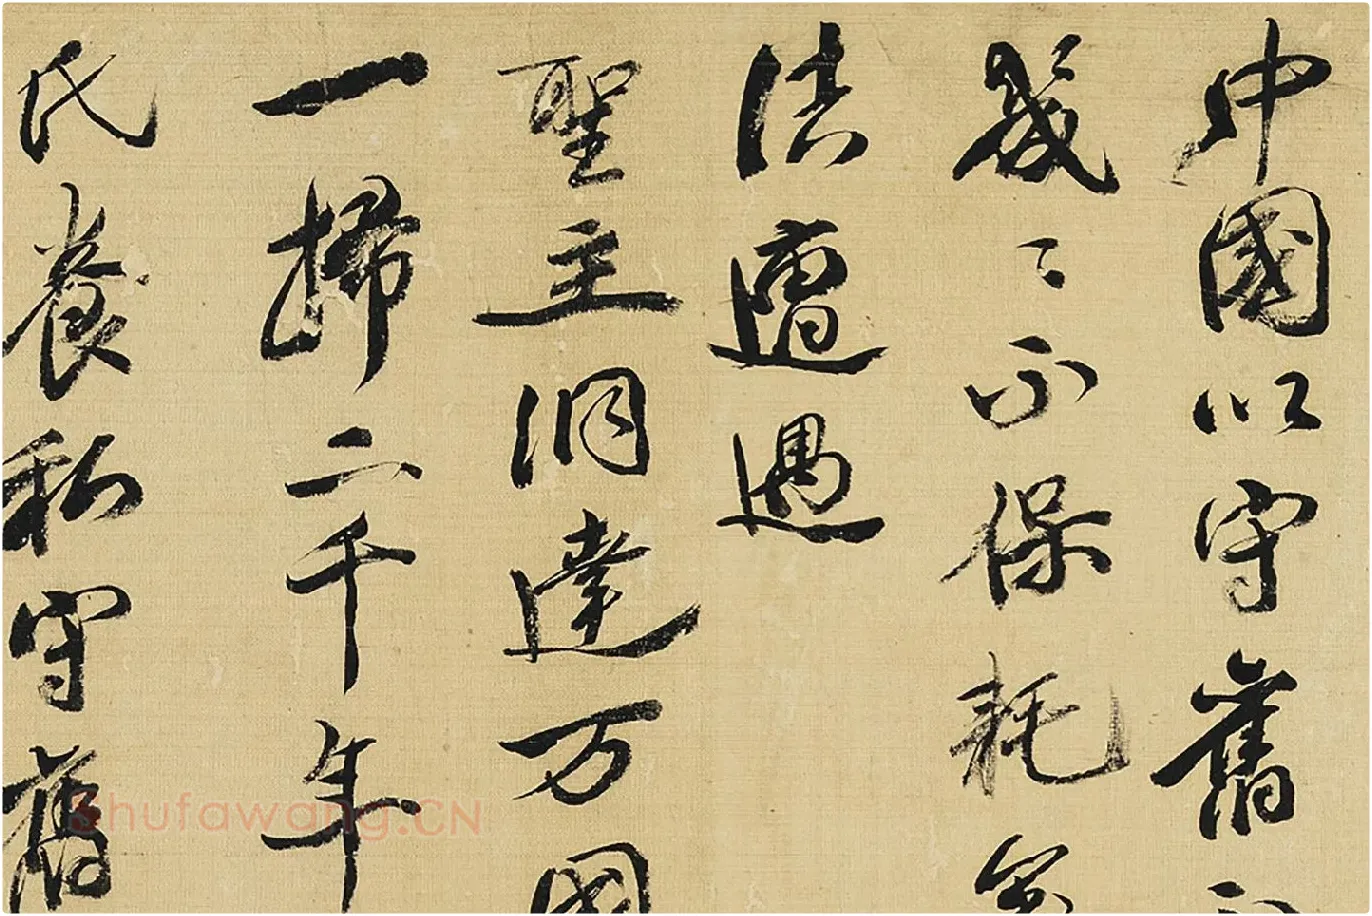 中國以守舊不
幾〻不保耗矣
法遭遇
聖主洞達万國
一掃二千年
氏養私守舊
Shufawang.CN